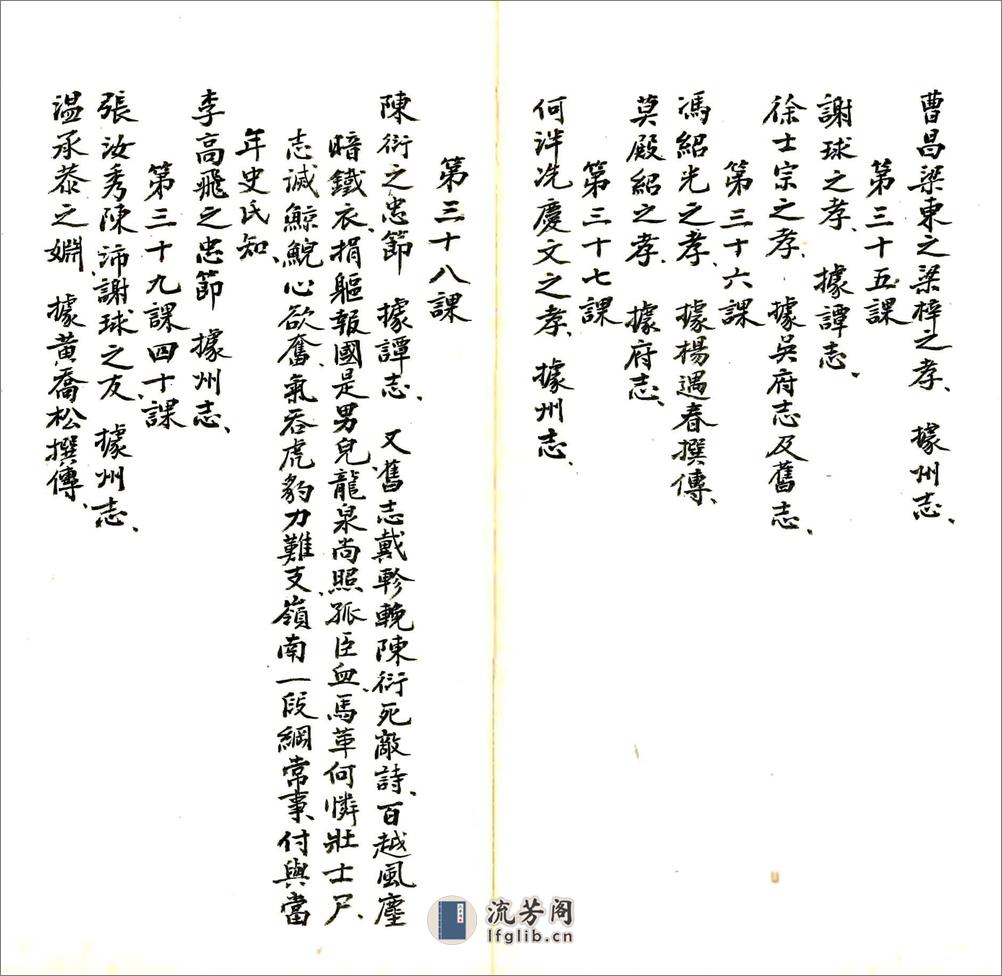 曹昌梁東之梁梓之孝、據州志、
第三十五課
謝球之孝、據譚志、
徐士宗之孝、據吳府志及舊志、
第三十六課
馮紹光之孝、據楊遇春撰傳、
莫殿紹之孝、據府志、
第三十七課
何泮冼慶文之孝、據州志、
第三十八課
陳衍之忠節 據譚志、又舊志戴軫輓陳衍死敵詩、百越風塵
暗鐵衣、捐軀報國是男兒龍泉尚照孤臣血、馬革何憐壯士尸、
志诚鯨鯢心欲奮、氣吞虎豹力難支、嶺南一段綱常事、付與當
年史氏知、
李高飛之忠節 據州志、
第三十九課四十課
張汝秀陳沛謝球之友、據州志、
溫承恭之婣 據黃喬松撰傳、
流芳阁
lfglib.cn